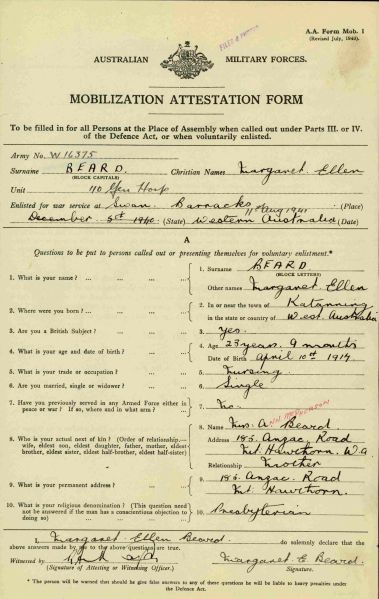 FILES & PHOTOS
A.A. Form Mob. 1
(Revised July, 1940).
AUSTRALIAN MILITARY FORCES.
MOBILIZATION ATTESTATION FORM
To be filled in for all Persons at the Place of Assembly when called out under Parts III. or IV.
of the Defence Act, or when voluntarily enlisted.
Army No. W16375
Surname BEARD. Christian Names Margaret Ellen
(BLOCK CAPITALS)
Unit 110 Gen Hosp
Enlisted for war service at Swan Barracks (Place)
11 Aug 1941
December 5th 1940 (State) Western Australia (Date)
A
Questions to be put to persons called out or presenting themselves for voluntary enlistment.*
1. What is your name? ... 1. Surname BEARD
(BLOCK LETTERS)
Other names Margaret Ellen
2. Where were you born? ... 2. In or near the town of Katanning
in the state or country of West. Australia
3. Are you a British Subject? ... 3. Yes.
4. What is your age and date of birth? ... 4. Age 25 years 9 months
Date of Birth April 10th 1914
5. What is your trade or occupation? ... 5. Nursing.
6. Are you married, single or widower? ... 6. Single
7. Have you previously served in any Armed Force either in
peace or war? If so, where and in what arm? ... 7. No.
8. Who is your actual next of kin? (Order of relationship.—
wife, eldest son, eldest daughter, father, mother, eldest
brother, eldest sister, eldest half-brother, eldest half-sister)
8. Name Mrs. A Beard.
Address 185. Anzac Road
Mt. Hawthorn. W.A
Relationship Mother
9. What is your permanent address? ... 9. 185. Anzac. Road
Mt. Hawthorn.
10. What is your religious denomination? (This question need
not be answered if the man has a conscientious objection to
doing so) ... 10. Presbyterian
I, Margaret Ellen Beard. do solemnly declare that the
above answers made by me to the above questions are true.
Witnessed by
Margaret E. Beard.
(Signature of Attesting or Witnessing Officer.) Signature.
* The person will be warned that should he give false answers to any of these questions he will be liable to heavy penalties under
the Defence Act.